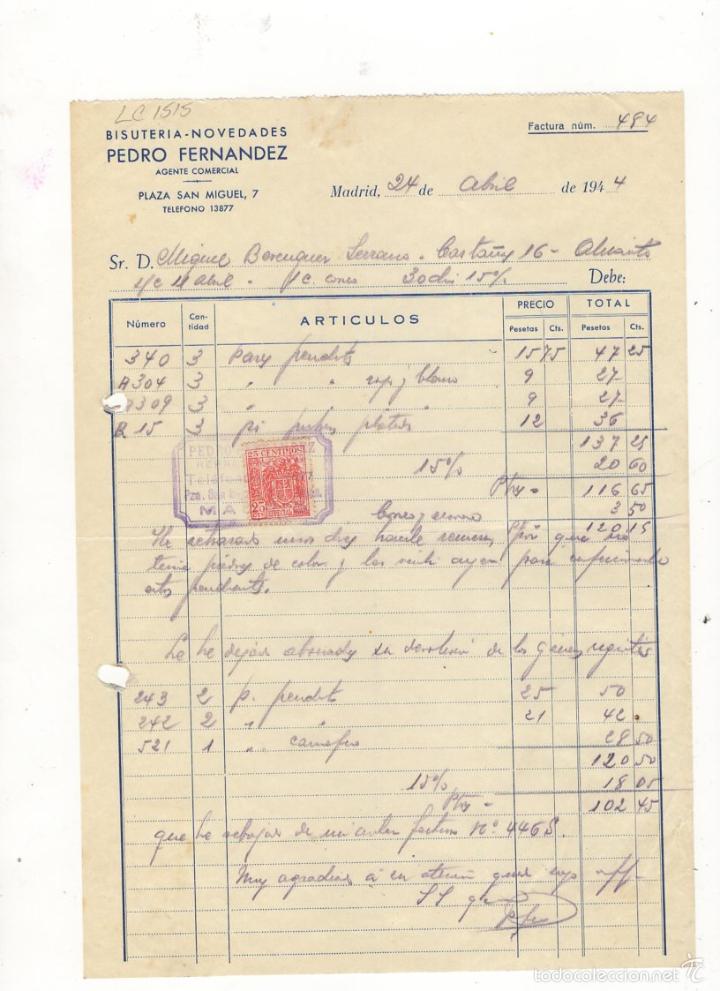 LC 1515
BISUTERIA-NOVEDADES
PEDRO FERNANDEZ
AGENTE COMERCIAL
PLAZA SAN MIGUEL, 7
TELEFONO 13877
Factura núm. 484
Madrid, 24 de Abril de 1944
Sr. D. Miguel Berenguer Serrano. Castaños 16 - Alicante
s/c 11 abril. 30 15%. Debe:
Número Cantidad ARTICULOS PRECIO TOTAL
Pesetas Cts. Pesetas Cts.
340 3 pares pendts 15 75 47 25
A304 3 " " rojo y blanco 9 27-
A309 3 " " 9 27-
B 15 3 12 36
137 25
15% 20 60
Ptas = 116 65
Correo y 3 50
120 15
25 CENTIMOS
MA
He retrasado unos dias hacerle remesa que no
tenia piedras de color y las recibi ayer para
estos pendientes.
Le he dejado abonado su devolución de los géneros sgtes
243 2 p. pendts 25 50
242 2 " " 21 42
521 1 " camafeo 28 50
120 50
15% 18 05
Ptas = 102 45
que he rebajado de mi factura Nº 446 S.
Muy agradecido a su atención
todocoleccion.net